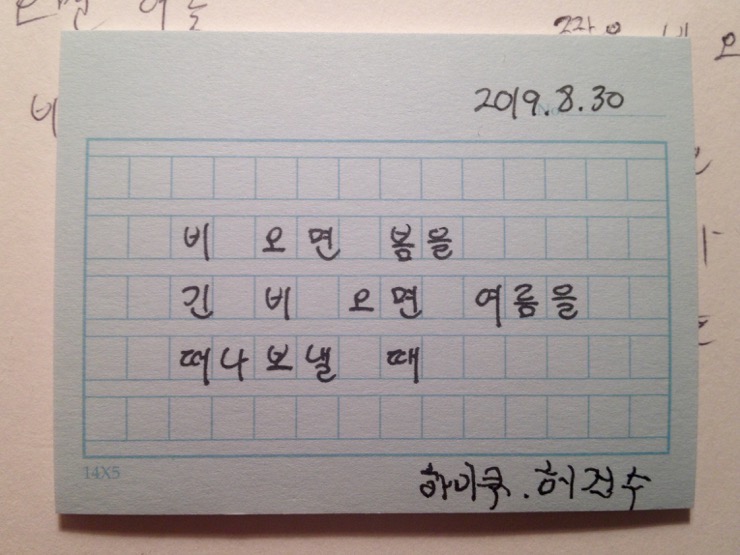 2019.8.30
비 오면 봄을
긴 비 오면 여름을
떠나보낼 때
14X5
하이쿡. 허건수